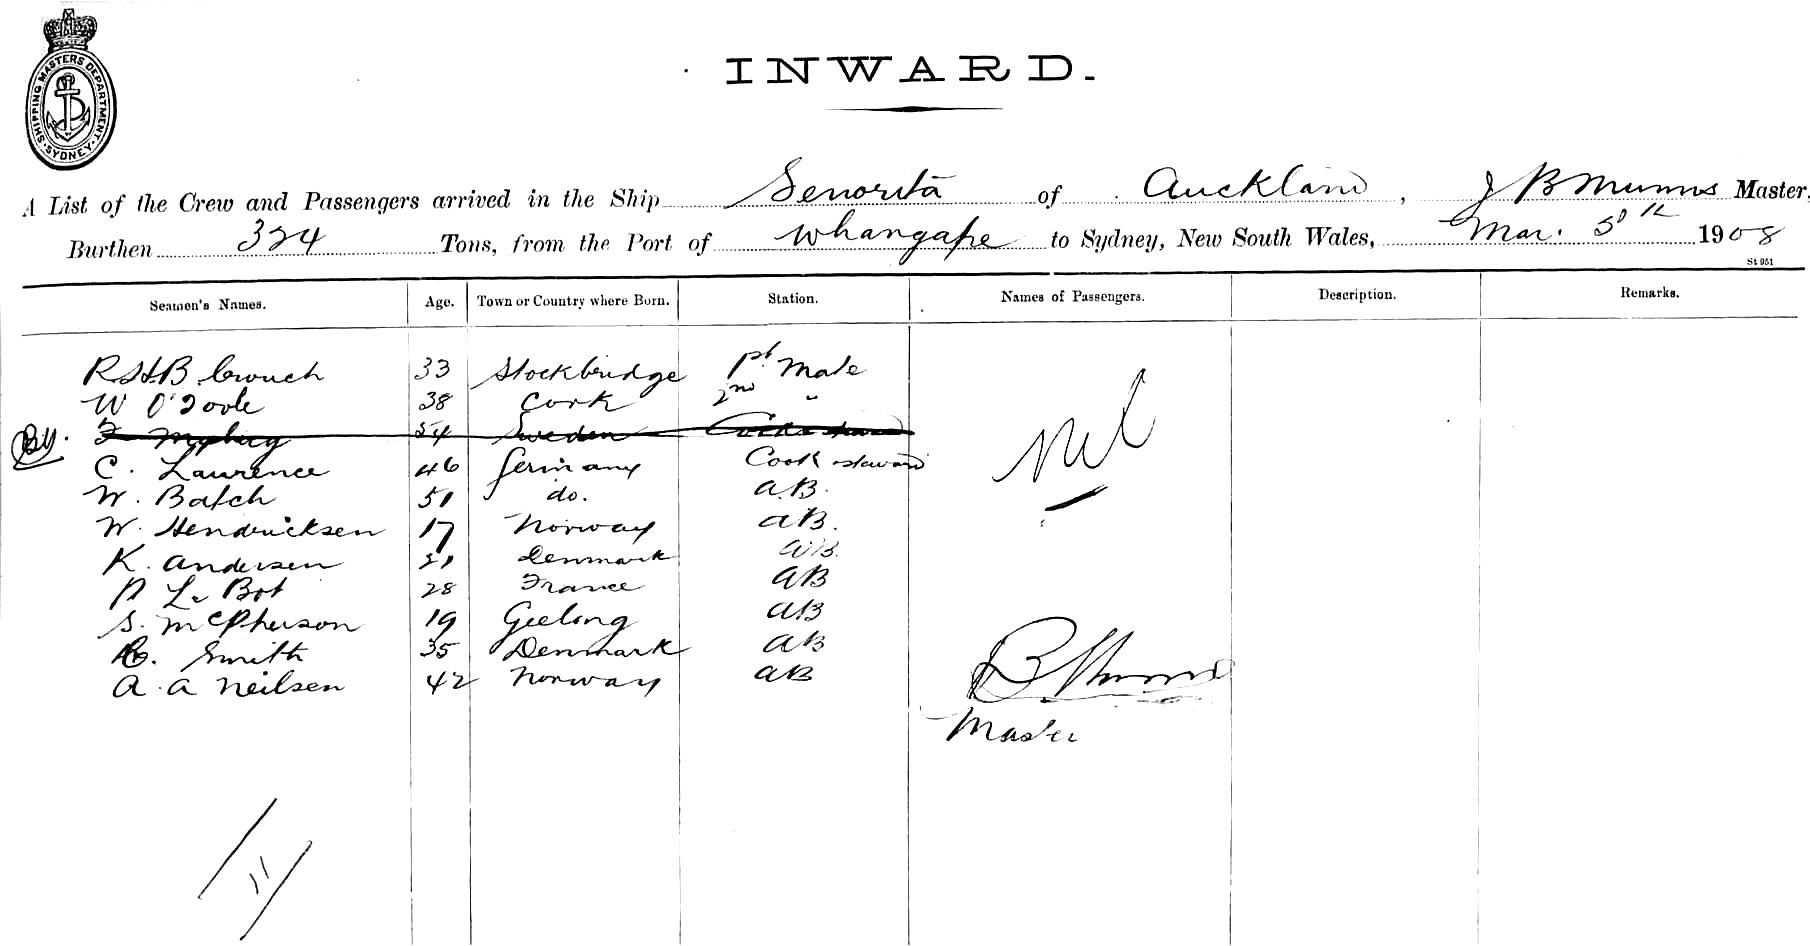 SHIPPING MASTERS DEPARTMENT. SYDNEY
INWARD.
A List of the Crew and Passengers arrived in the Ship Senorita of Auckland, J B Munro Master,
Burthen 324 Tons, from the Port of Whangape to Sydney, New South Wales, Mar. 5th 1908
St 951
Seamen's Names. Age. Town or Country where Born. Station. Names of Passengers. Description. Remarks.
R H B Crouch 33 Stockbridge 1st Mate
W O'Toole 38 Cork 2nd "
54 Sweden
C. Laurence 46 Germany Cook steward
W. Batch 51 do. A.B.
W. Hendricksen 17 Norway A.B.
K. Andersen 21 Denmark A.B.
P Le Bot 28 France AB
S. McPherson 19 Geelong AB
Smith 35 Denmark AB
A. A Neilsen 42 Norway AB
Nil
Master
11